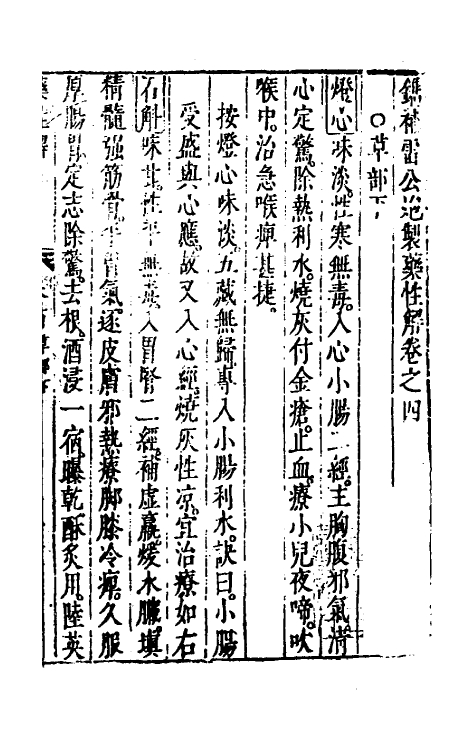 鐫補雷公炮製藥性解卷之四
○草部下
燈心味淡性寒無毒入心小腸二經主胸腹邪氣清
心定驚除熱利水燒灰付金瘡止血療小兒夜啼吹
喉中治急喉痺甚捷
按燈心味淡五藏無歸專入小腸利水訣曰小腸
受盛與心應故又入心經燒灰性凉宜治療如右
石斛味甘性平無毒入胃腎二經補虛羸煖水臟填
精髓强筋骨平胃氣逐皮膚邪熱療脚膝冷痺久服
厚腸胃定志除驚去根酒浸一宿曝乾酥炙用陸英
藥性解